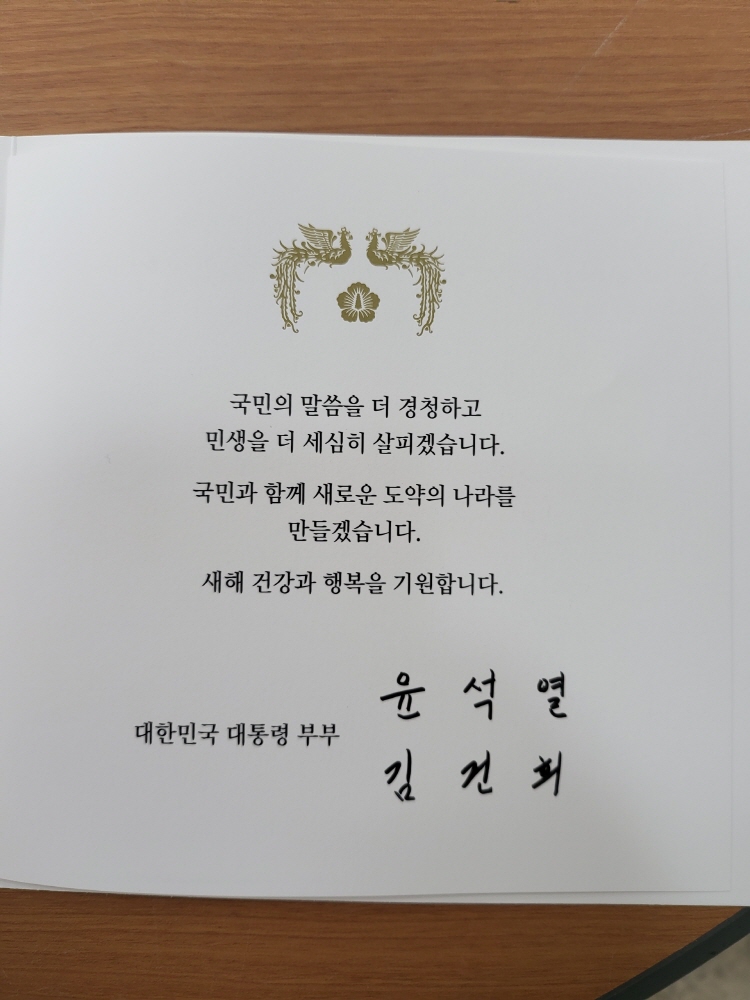 국민의 말씀을 더 경청하고
민생을 더 세심히 살피겠습니다.
국민과 함께 새로운 도약의 나라를
만들겠습니다.
새해 건강과 행복을 기원합니다.
대한민국 대통령 부부
윤 석 열
김 건 희